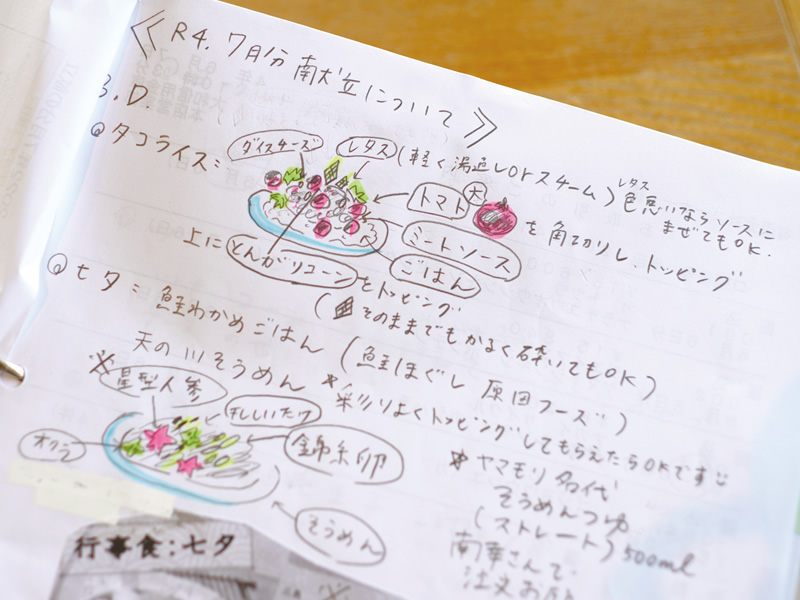 ≪R4.7月分 献立について≫
3.D.
タコライス:
ダイスチーズ
レタス
(軽く湯通しorスチーム)
レタス
色悪いならソースに
まぜてもOK.
トマト 大
を角切りし、トッピング
ミートソース
ごはん
上にとんがりコーンをトッピング
(そのままでもかるく砕いてもOK)
七夕:鮭わかめごはん
(鮭ほぐし 原田フーズ)
天の川そうめん
*彩りよくトッピングしてもらえたらOKです
※
星型人参
干ししいたけ
オクラ
錦糸卵
そうめん
*ヤマモリ名代
そうめんつゆ
(ストレート)500ml
南華さんで
行事食:七夕